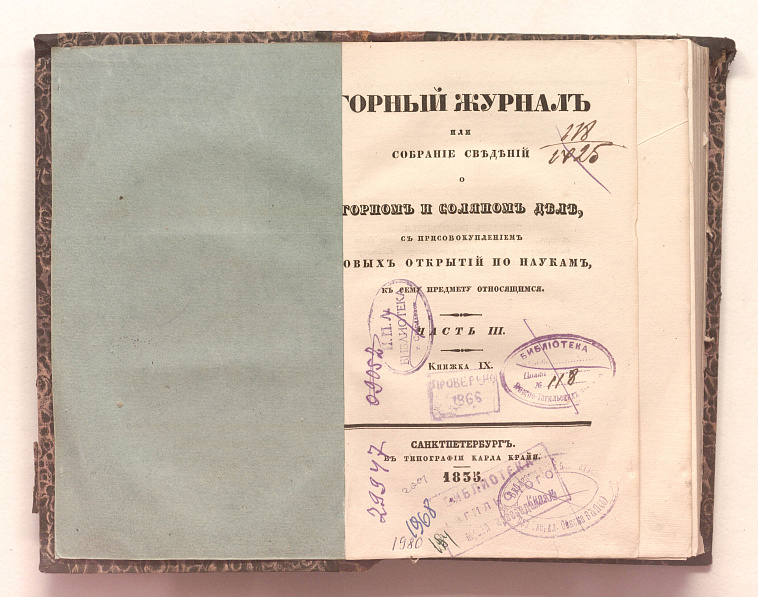 ГОРНЫЙ ЖУРНАЛЪ
ИЛИ
СОБРАНІЕ СВѢДѢНІЙ
О
ГОРНОМЪ И СОЛЯНОМЪ ДѢЛѢ,
СЪ ПРИСОВОКУПЛЕНІЕМЪ
ОВЫХЪ ОТКРЫТІЙ ПО НАУКАМЪ,
КЪ СЕМУ ПРЕДМЕТУ ОТНОСЯЩИМСЯ.
ЧАСТЬ III.
КНИЖКА IX.
САНКТПЕТЕРБУРГЪ.
ВЪ ТИПОГРАФІИ КАРЛА КРАЙЯ.
1835.
118
1425
БИБЛІОТЕКА
БИБЛІОТЕКА
№ 118
ПРОВЕРЕНО
1968
29947
БИБЛИОТЕКА
1968
1980